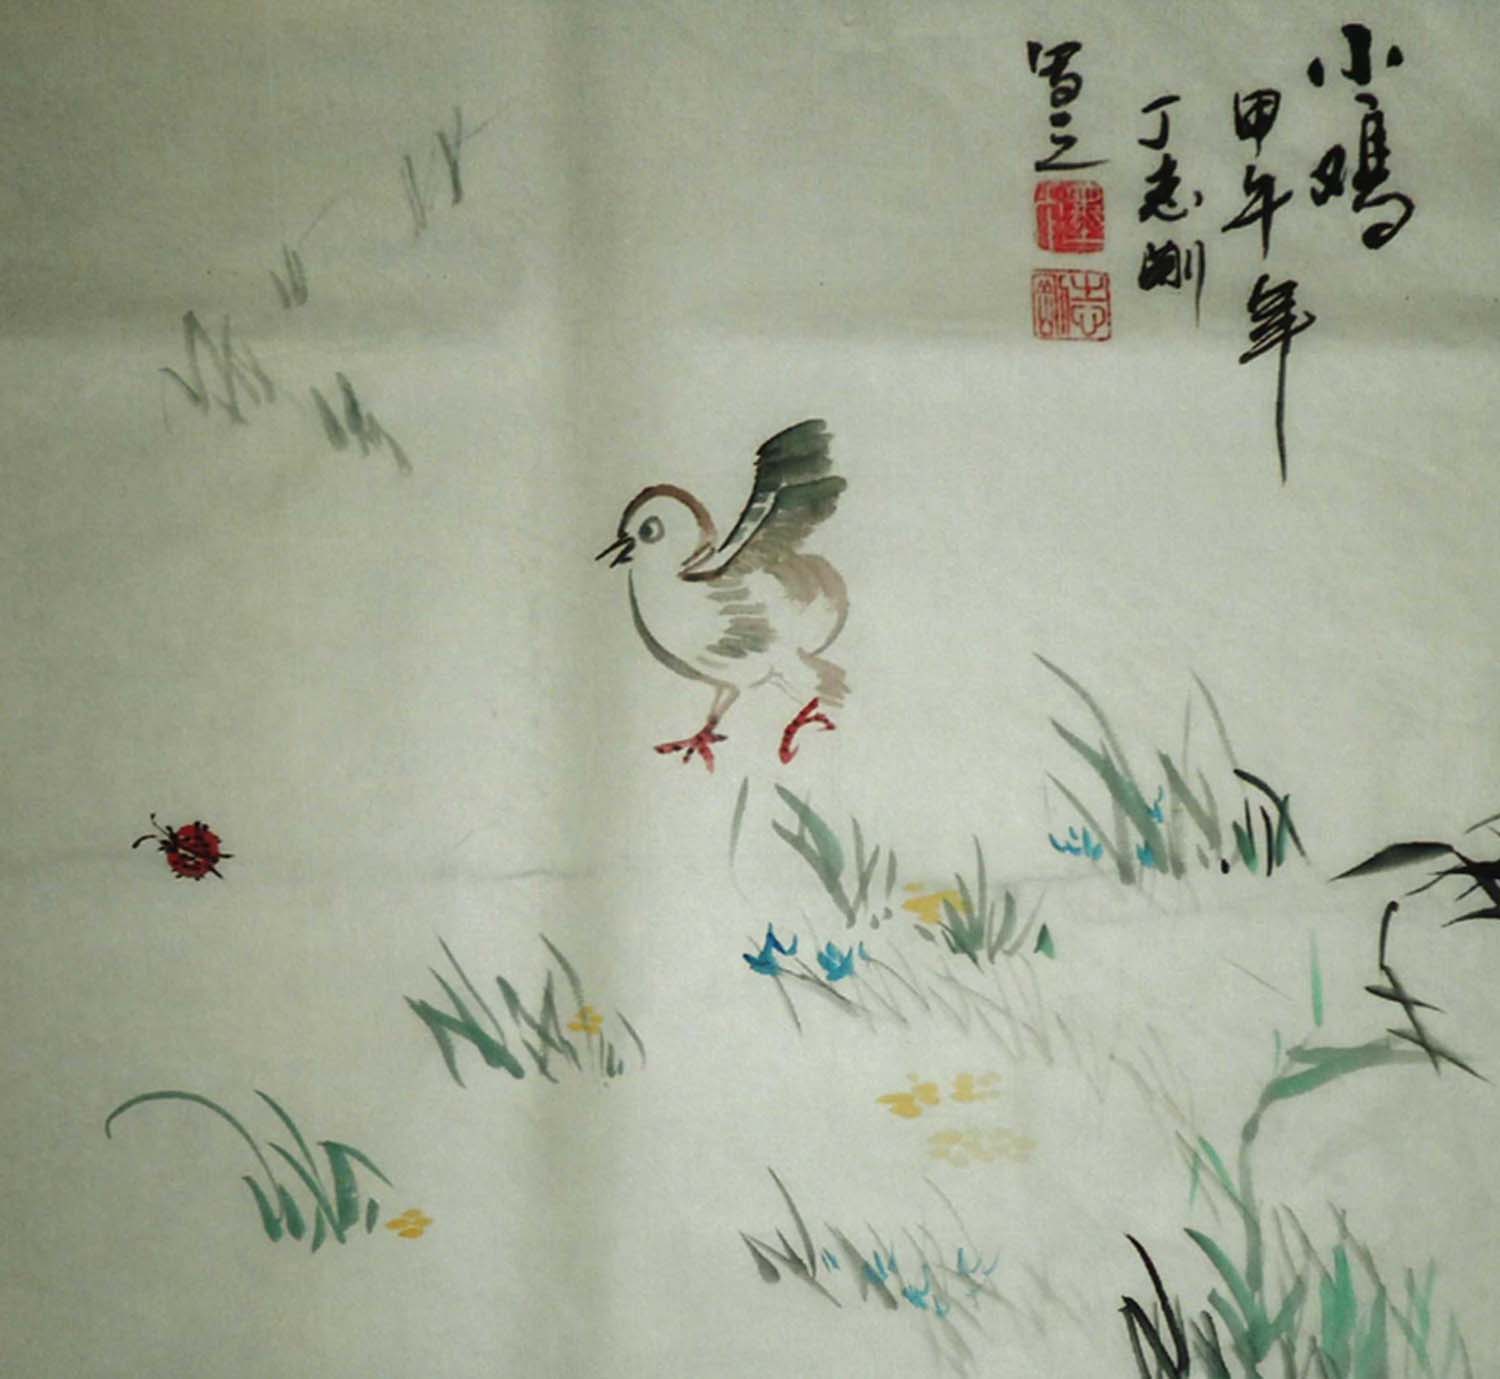 小鸡
甲午年
丁志刚
写之